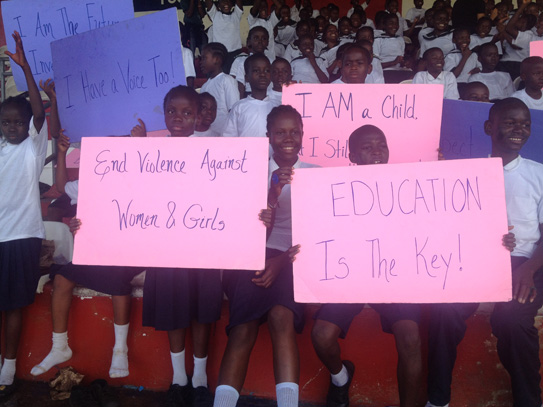 I am The Futu
Inv
I Have a Voice Too!
I AM a Child.
I Still
End Violence Against
Women & Girls
EDUCATION
Is The Key!